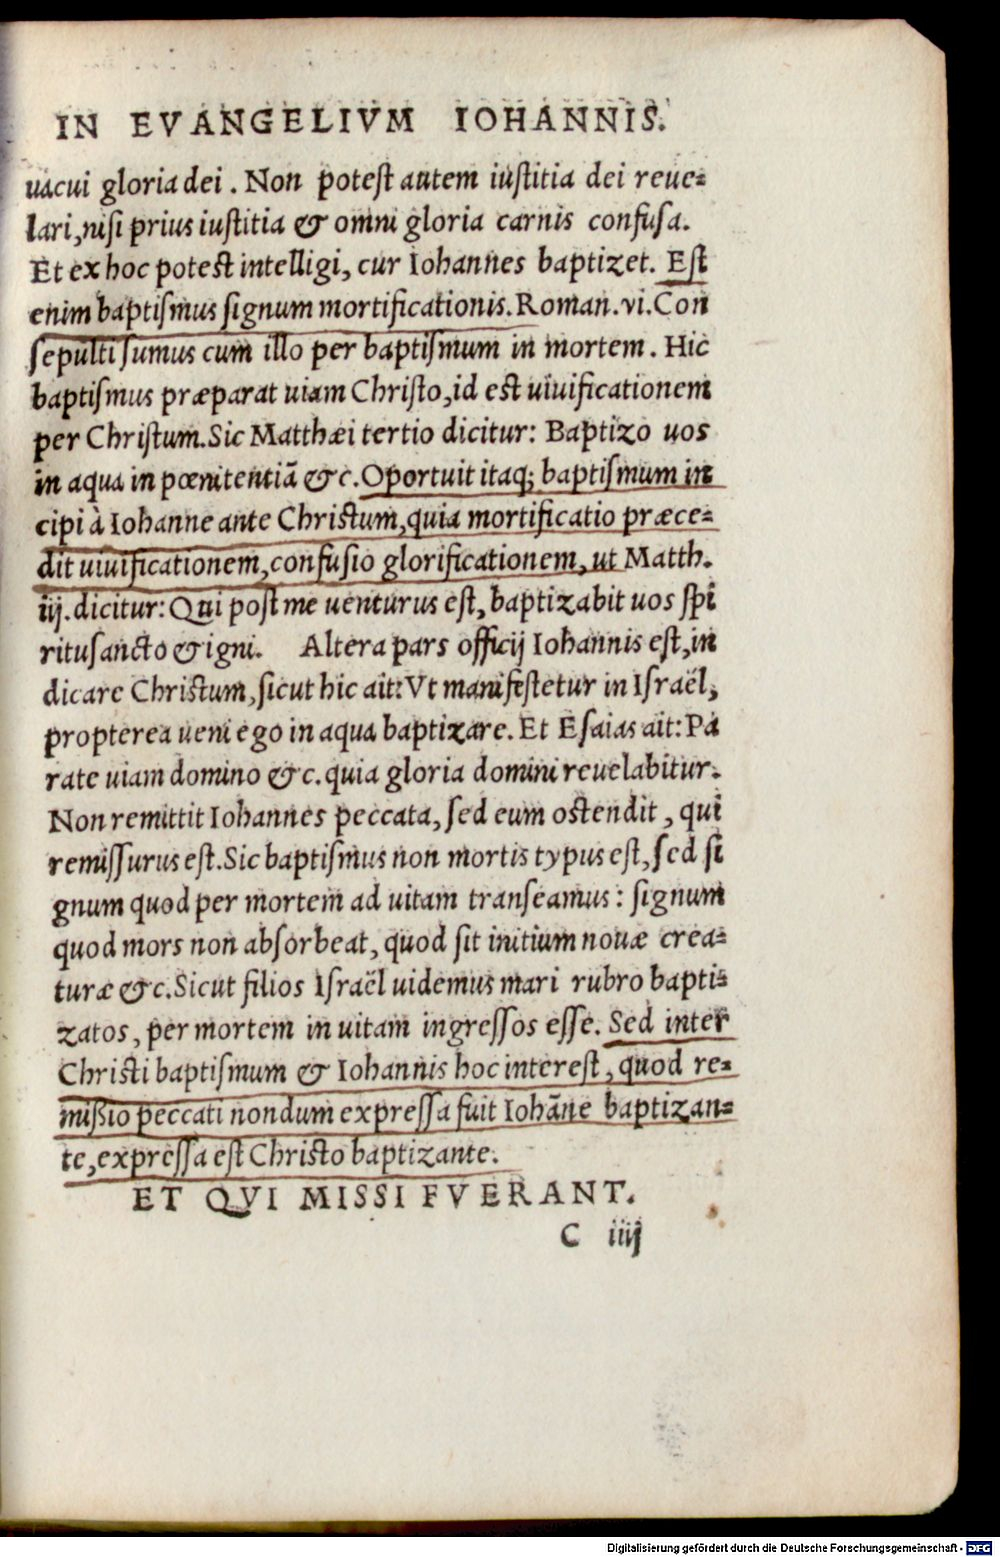 IN EVANGELIVM IOHANNIS.
uacui gloria dei. Non potest autem iustitia dei reue-
lari, nisi prius iustitia & omni gloria carnis confusa.
Et ex hoc potest intelligi, cur Iohannes baptizet. Est
enim baptismus signum mortificationis. Roman. vi. Con
sepulti sumus cum illo per baptismum in mortem. Hic
baptismus præparat uiam Christo, id est uiuificationem
per Christum. Sic Matthæi tertio dicitur: Baptizo uos
in aqua in pœnitentiā &c. Oportuit itaq; baptismum in
cipi à Iohanne ante Christum, quia mortificatio præce-
dit uiuificationem, confusio glorificationem, ut Matth.
iij. dicitur: Qui post me uenturus est, baptizabit uos spi
ritu sancto & igni. Altera pars officij Iohannis est, in
dicare Christum, sicut hic ait: Vt manifestetur in Israël,
propterea ueni ego in aqua baptizare. Et Esaias ait: Pa
rate uiam domino &c. quia gloria domini reuelabitur.
Non remittit Iohannes peccata, sed eum ostendit, qui
remissurus est. Sic baptismus non mortis typus est, sed si
gnum quod per mortem ad uitam transeamus: signum
quod mors non absorbeat, quod sit initium nouæ crea-
turæ &c. Sicut filios Israël uidemus mari rubro bapti-
zatos, per mortem in uitam ingressos esse. Sed inter
Christi baptismum & Iohannis hoc interest, quod re-
mißio peccati nondum expressa fuit Iohāne baptizan-
te, expressa est Christo baptizante.
ET QVI MISSI FVERANT.
C iiij
Digitalisierung gefördert durch die Deutsche Forschungsgemeinschaft - DFG